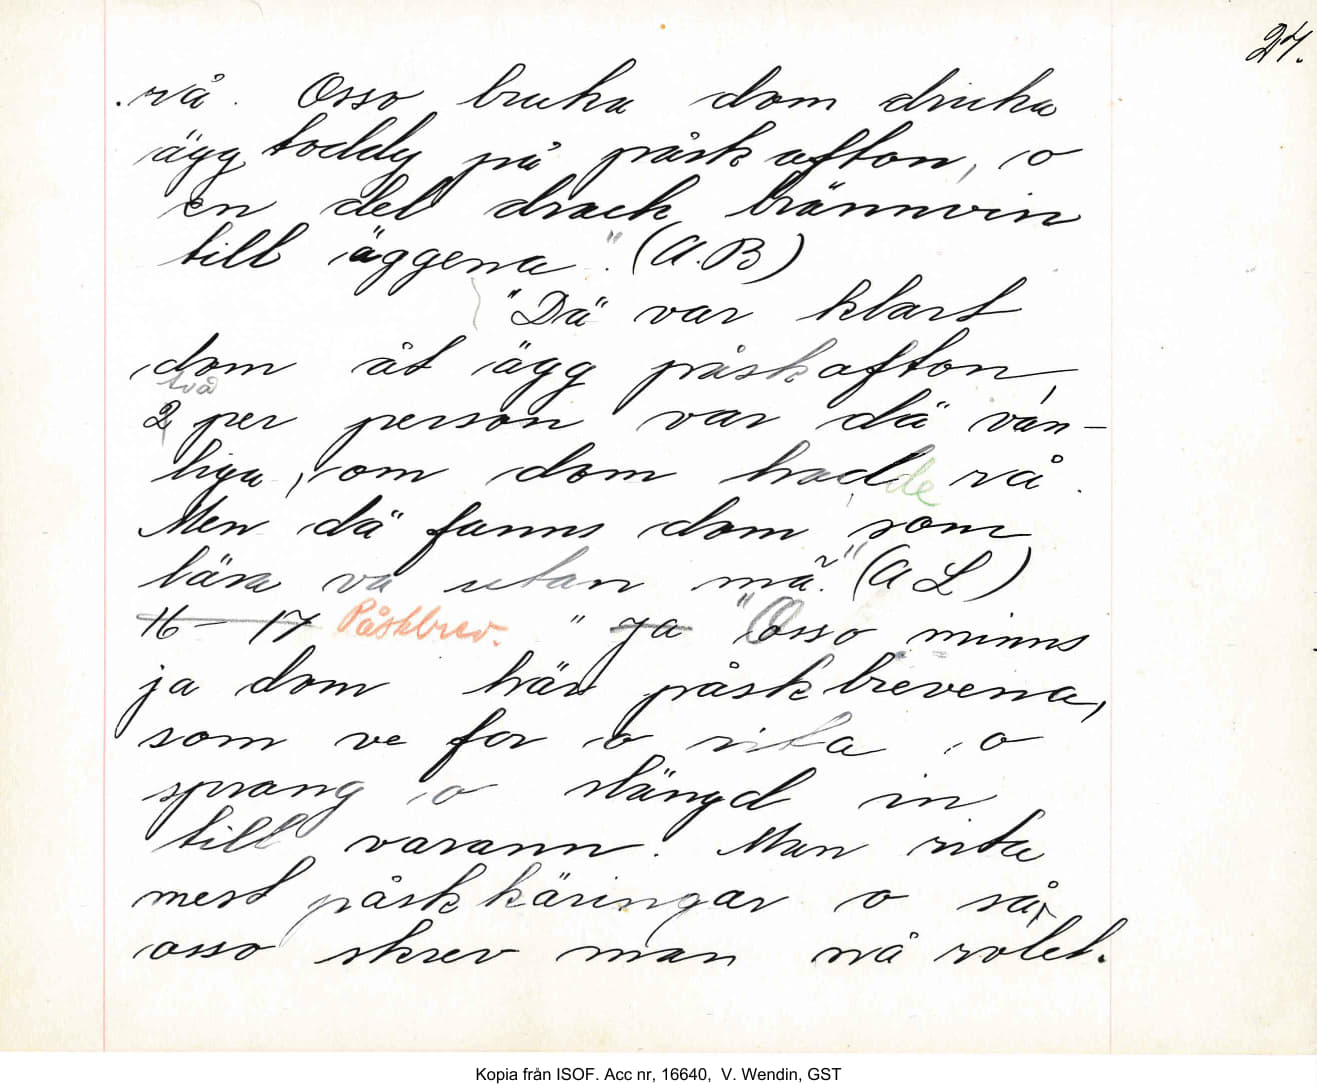 24.
så. Osso bruka dom dricka
ägg toddy på påskafton, o
en del drack brännvin
till äggena." (A.B)
"Dä var klart
dom åt ägg påskafton,
två
2 per person var dä van-
liga, om dom hadde så.
Men dä fanns dom som
lära va utan mä." (A L)
16-17 Påskbrev. " Ja "Osso minns
ja dom här påskbrevena,
som ve for o rita o
sprang o slängd in
till varann. Man rita
mest påskkäringar o så
osso skrev man nå rolet.
Kopia från ISOF. Acc nr, 16640, V. Wendin, GST